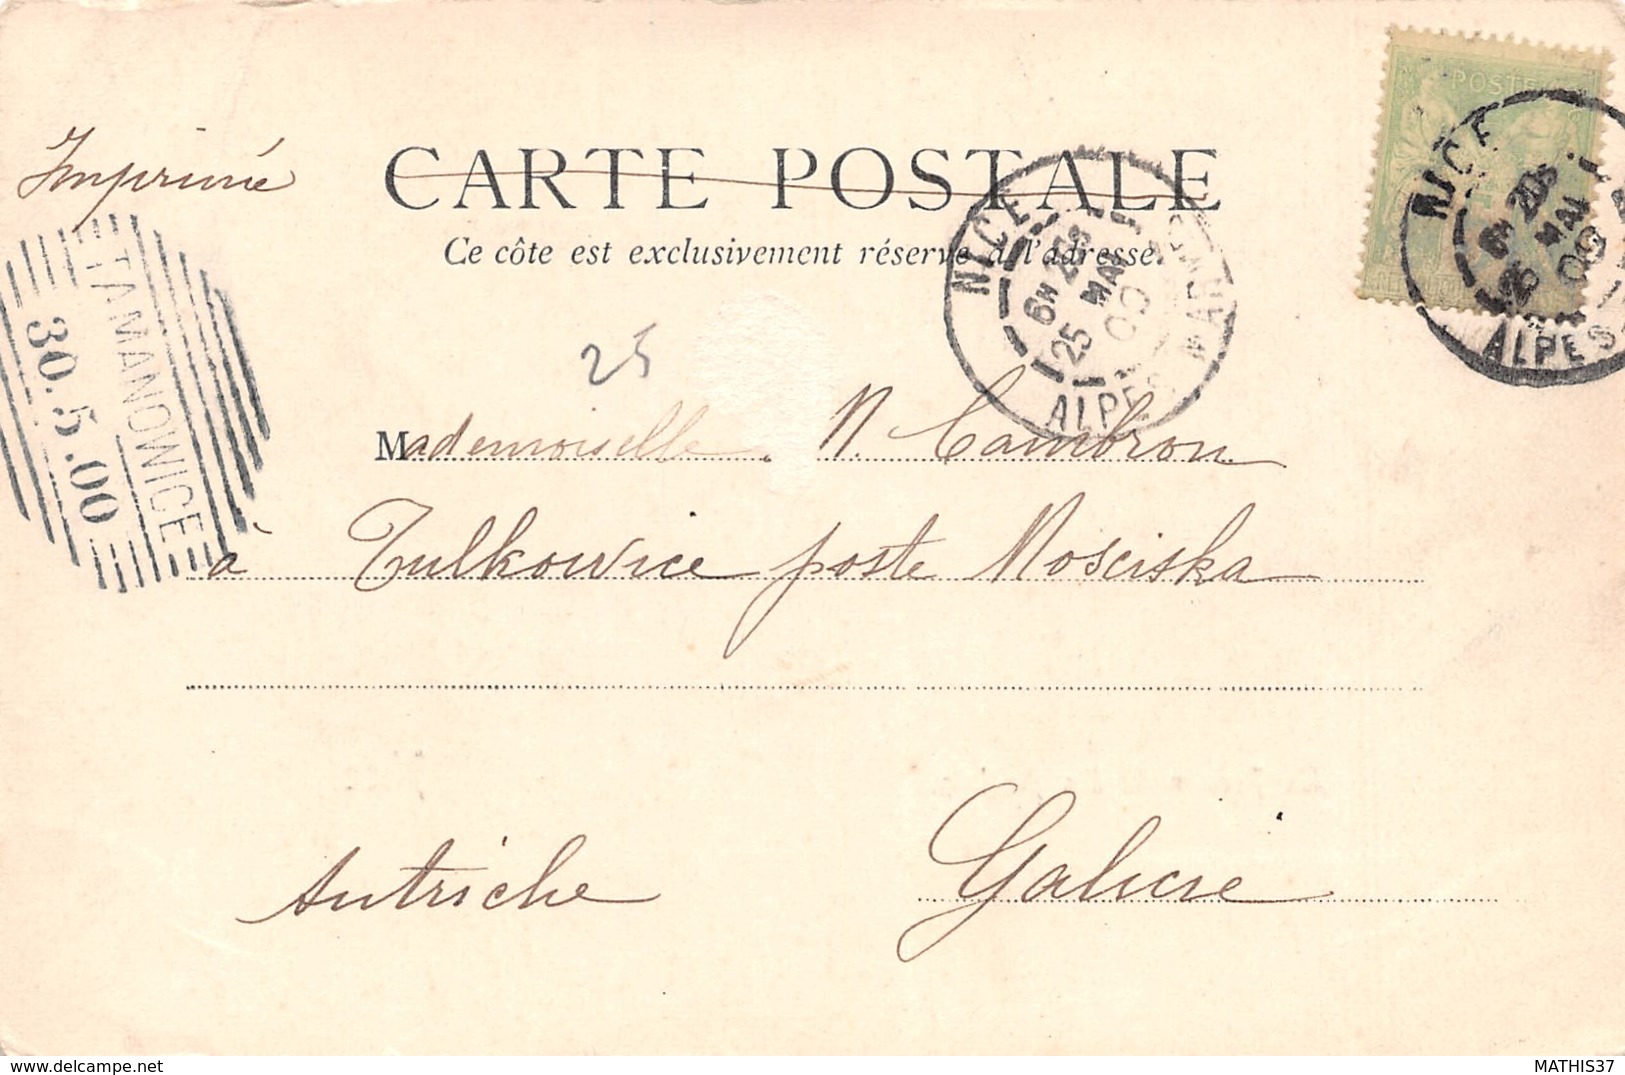 Imprimé
CARTE POSTALE
Ce côte est exclusivement réservé à l'adresse.
TAMANOWICE
30.5.00
NICE
6H 20S
25 MAI
00
ALPES MAR
POSTE
NICE
6H 20S
25 MAI
00
ALPES
25
Mademoiselle N. Cambron
à Tulkowice poste Mosciska
Autriche Galicie
MATHIS37